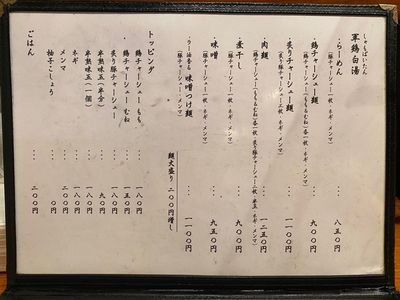 しゃもぱいたん
軍鶏白湯
・らーめん ・・・ 八五〇円
(豚チャーシュー一枚・ネギ・メンマ)
・鶏チャーシュー麺 ・・・ 九〇〇円
(鶏チャーシュー(ももむね)各一枚・ネギ・メンマ)
・炙りチャーシュー麺 ・・・ 一一〇〇円
(炙り豚チャーシュー二枚・ネギ・メンマ)
・肉麺 ・・・ 一二五〇円
(鶏チャーシュー(ももむね)各一枚・炙り豚チャーシュー二枚・半玉・ネギ・メンマ)
・煮干し ・・・ 九〇〇円
(豚チャーシュー一枚・ネギ・メンマ)
・味噌 ・・・ 九五〇円
(豚チャーシュー一枚・ネギ・メンマ)
・ラー油香る 味噌つけ麺 ・・・ 一一〇〇円
(豚チャーシュー・メンマ)
麺大盛り 二〇〇円増し
トッピング
鶏チャーシュー もも ・・・ 一八〇円
鶏チャーシュー むね ・・・ 一五〇円
炙り豚チャーシュー ・・・ 一八〇円
半熟味玉(半分) ・・・ 九〇円
半熟味玉(一個) ・・・ 一八〇円
ネギ ・・・ 一八〇円
メンマ ・・・ 二〇〇円
柚子こしょう ・・・ 〇円
ごはん ・・・ 二〇〇円